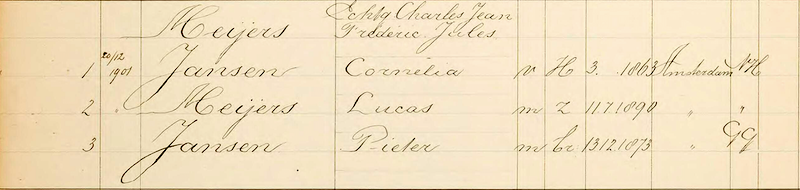 Meijers Echtg Charles Jean
Frederic Jules
1 20/12 1901 Jansen Cornelia v H 3. 1863 Amsterdam NH
2 " Meijers Lucas m Z 11.7.1890 " "
3 Jansen Pieter m br 13.12.1873 " Gg